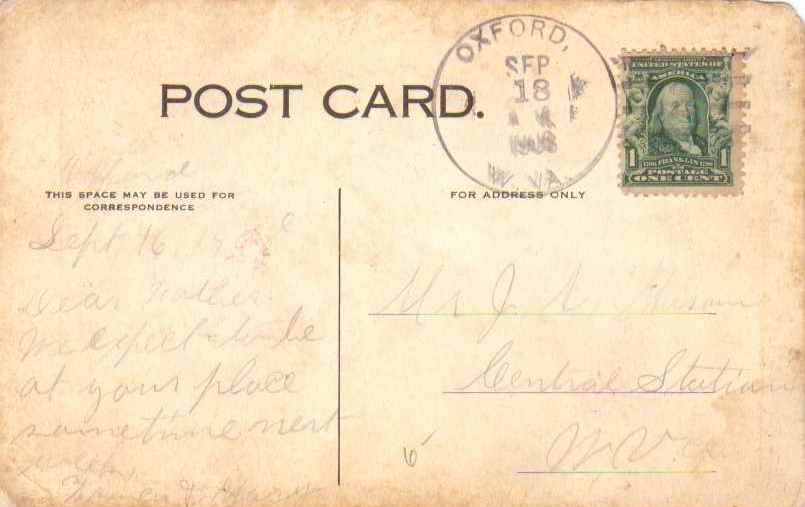 POST CARD.
OXFORD,
SEP
18
W. VA.
UNITED STATES OF
AMERICA
1
1706 FRANKLIN 1790
POSTAGE
ONE CENT
THIS SPACE MAY BE USED FOR
CORRESPONDENCE
FOR ADDRESS ONLY
Oxford
Sept 16, 190
Dear Mother
We expect to be
at your place
sometime next
week,
Mr J.
Central Station
W Va
6